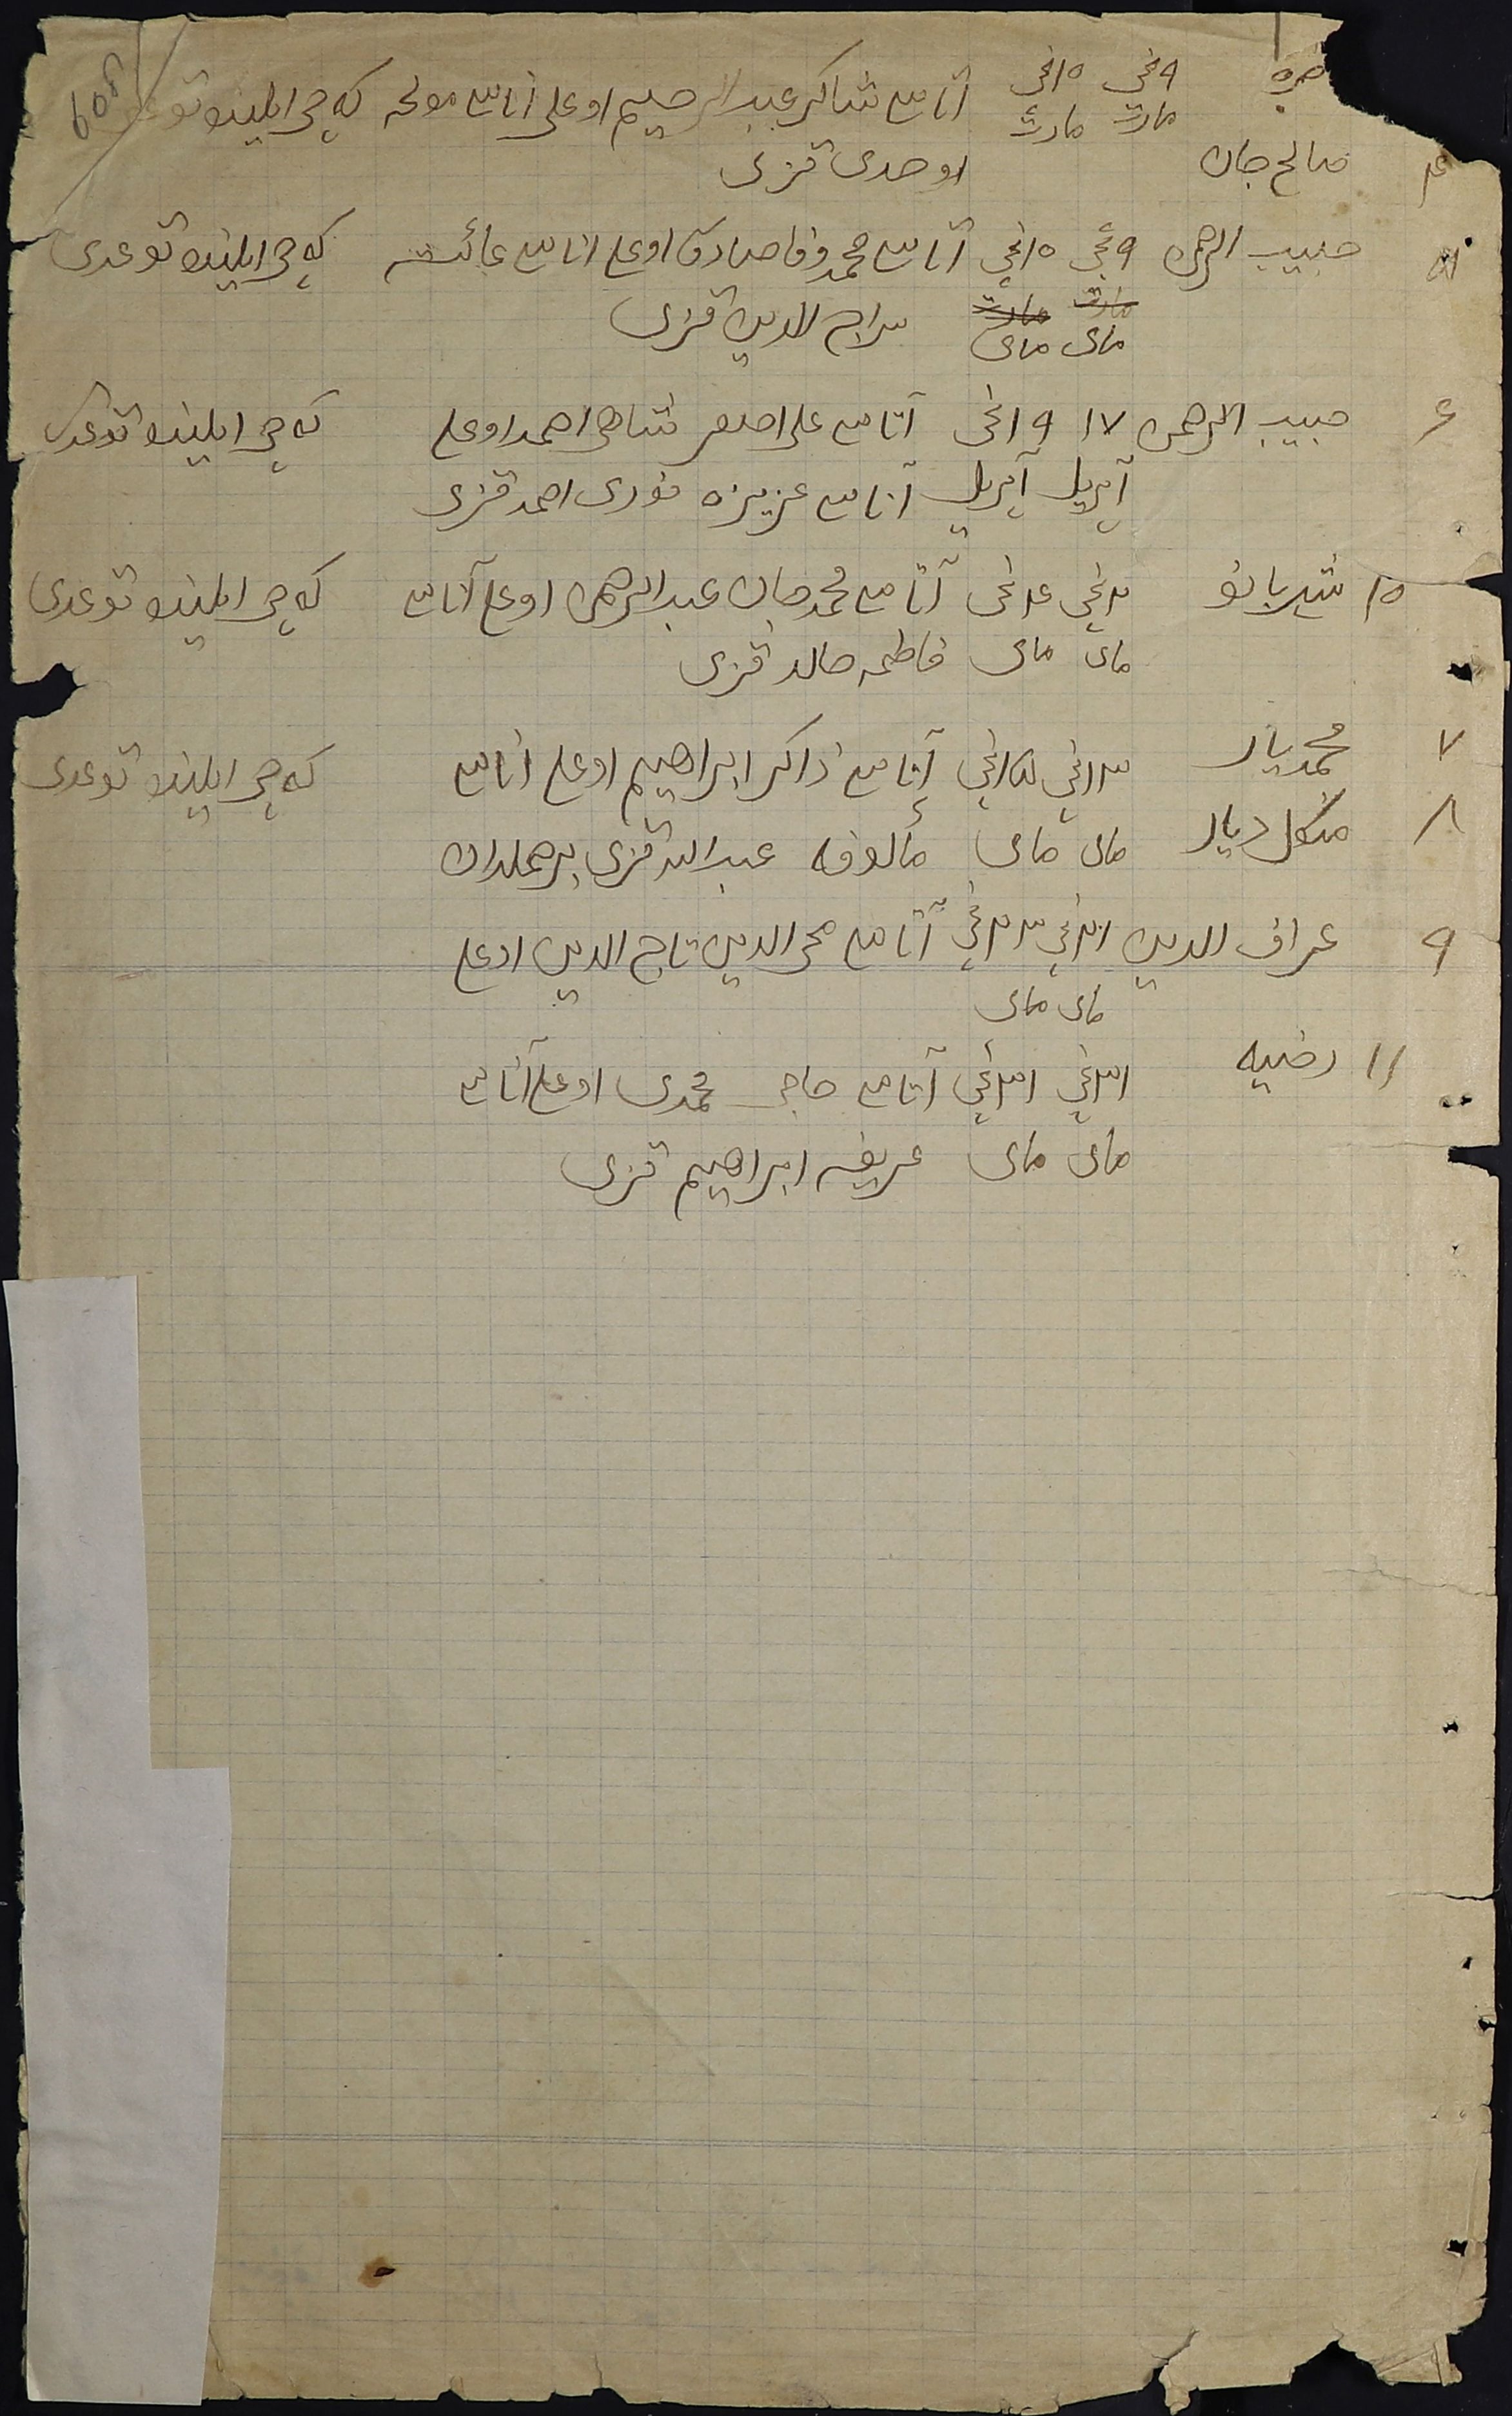 ۹نچی ۱۰نچی آتاسی شاکر عبدالرحیم اوغلی آناسی که چی ایلینده
مارت مارت
۴ صالح جان اوحدی قزی
۵ حبیب الرحمن ۹نچی ۱۰نچی آتاسی محمد وفا صادق اوغلی اناسی عائشه که چی ایلینده توغدی
مارت مارت سراج الدین قزی
مای مای
۶ حبیب الرحمن ۱۷ ۱۹نچی آتاسی علی اصغر شاهی احمد اوغلی که چی ایلینده توغدی
آپریل آپریل آناسی عزیزه نوری احمد قزی
۱۰ شهربانو ۳نچی ۴نچی آتاسی محمد جان عبدالرحمن اوغلی آناسی که چی ایلینده توغدی
مای مای فاطمه خالد قزی
۷ محمدیار ۱۳نچی ۱۵نچی آتاسی ذاکر ابراهیم اوغلی اناسی که چی ایلینده توغدی
۸ دیار مای مای مألوفه عبدالله قزی
۹ الدین آتاسی محی الدین تاج الدین اوغلی
مای مای
۱۱ رضیه آتاسی حاجی محمدی اوغلی آناسی
مای مای عریفه ابراهیم قزی